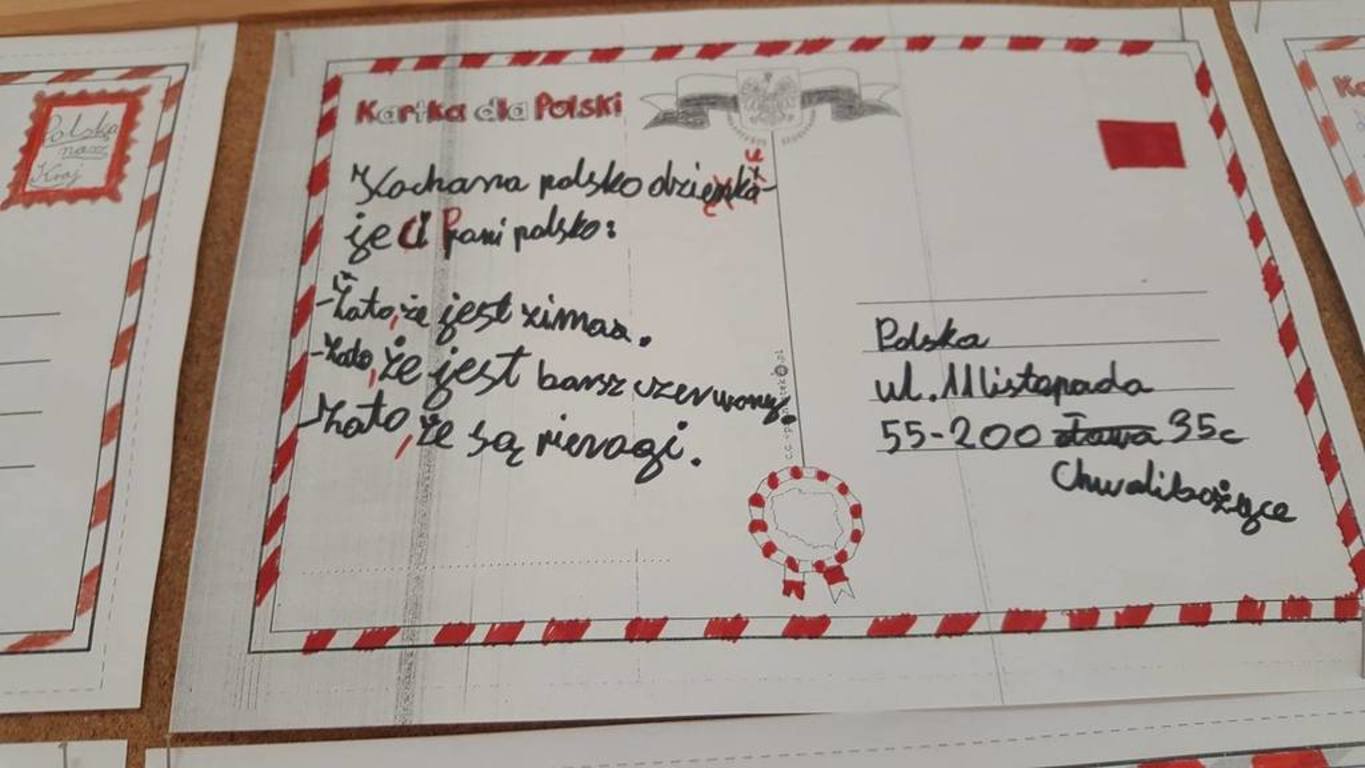 Polska
nasz
Kraj
Kartka dla Polski
Kochana polsko dzienkó-
ję Ci Pani polsko:
-Zato, że jest zimaa.
-zato, że jest barsz czerwony.
-Zato, że są pierogi.
Polska
ul. 11 listopada
55-200 Oława 35c
Chwalibożyce